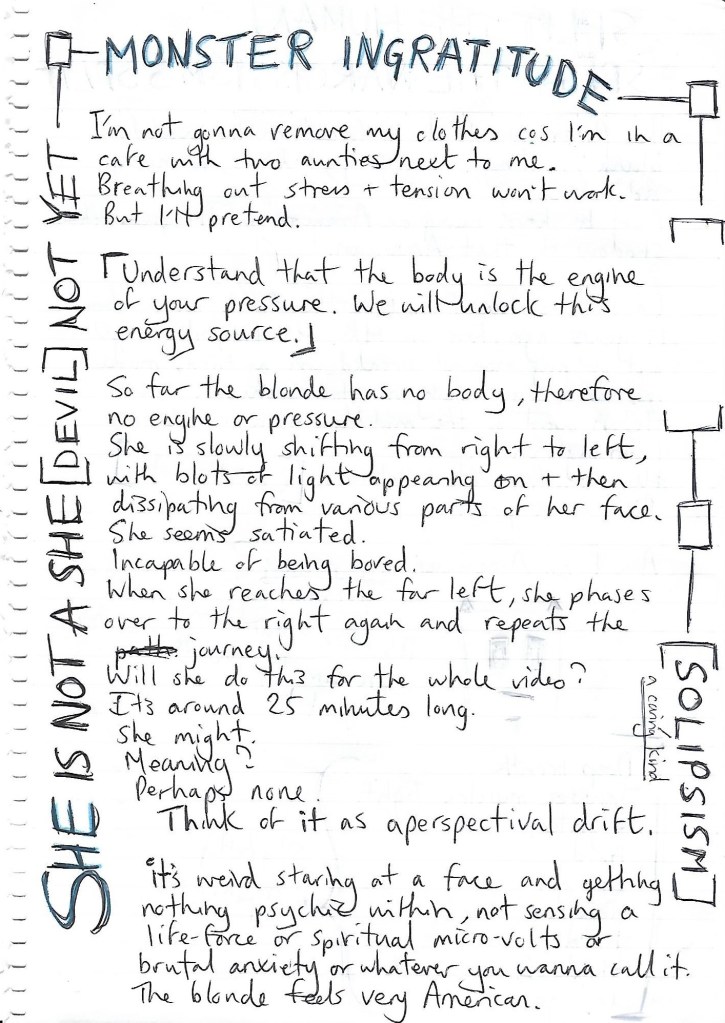 MONSTER INGRATITUDE
I'm not gonna remove my clothes cos I'm in a
cafe with two aunties next to me.
Breathing out stress + tension won't work.
But I'll pretend.
「Understand that the body is the engine
of your pressure. We will unlock this
energy source.」
So far the blonde has no body, therefore
no engine or pressure.
She is slowly shifting from right to left,
with blots of light appearing on + then
dissipating from various parts of her face.
She seems satiated.
Incapable of being bored.
When she reaches the far left, she phases
over to the right again and repeats the
journey.
Will she do this for the whole video?
It's around 25 minutes long.
She might.
Meaning?
Perhaps none.
Think of it as aperspectival drift.
It's weird staring at a face and getting
nothing psychic within, not sensing a
life-force or spiritual micro-volts or
brutal anxiety or whatever you wanna call it.
The blonde feels very American.
SHE IS NOT A SHE [DEVIL] NOT YET
[SOLIPSISM]
a caring kind